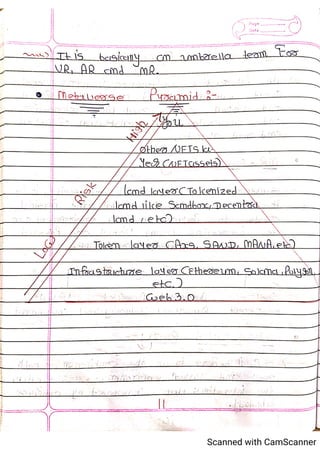 Page
Date
It is basically an umbrella team For
VR, AR and MR.
• Metaverse Pyramid :-
High
Risk
Low
You
other NFTS la-
Yer (NFTassets)
land layer (Tokenized
land like Sandbox, Decentra
land, etc)
Token layer (Axs, SAND, MANA, etc)
Infrastructure layer (Ethereum, Solana, Polygon,
etc.)
Web 3.0
11
Scanned with CamScanner